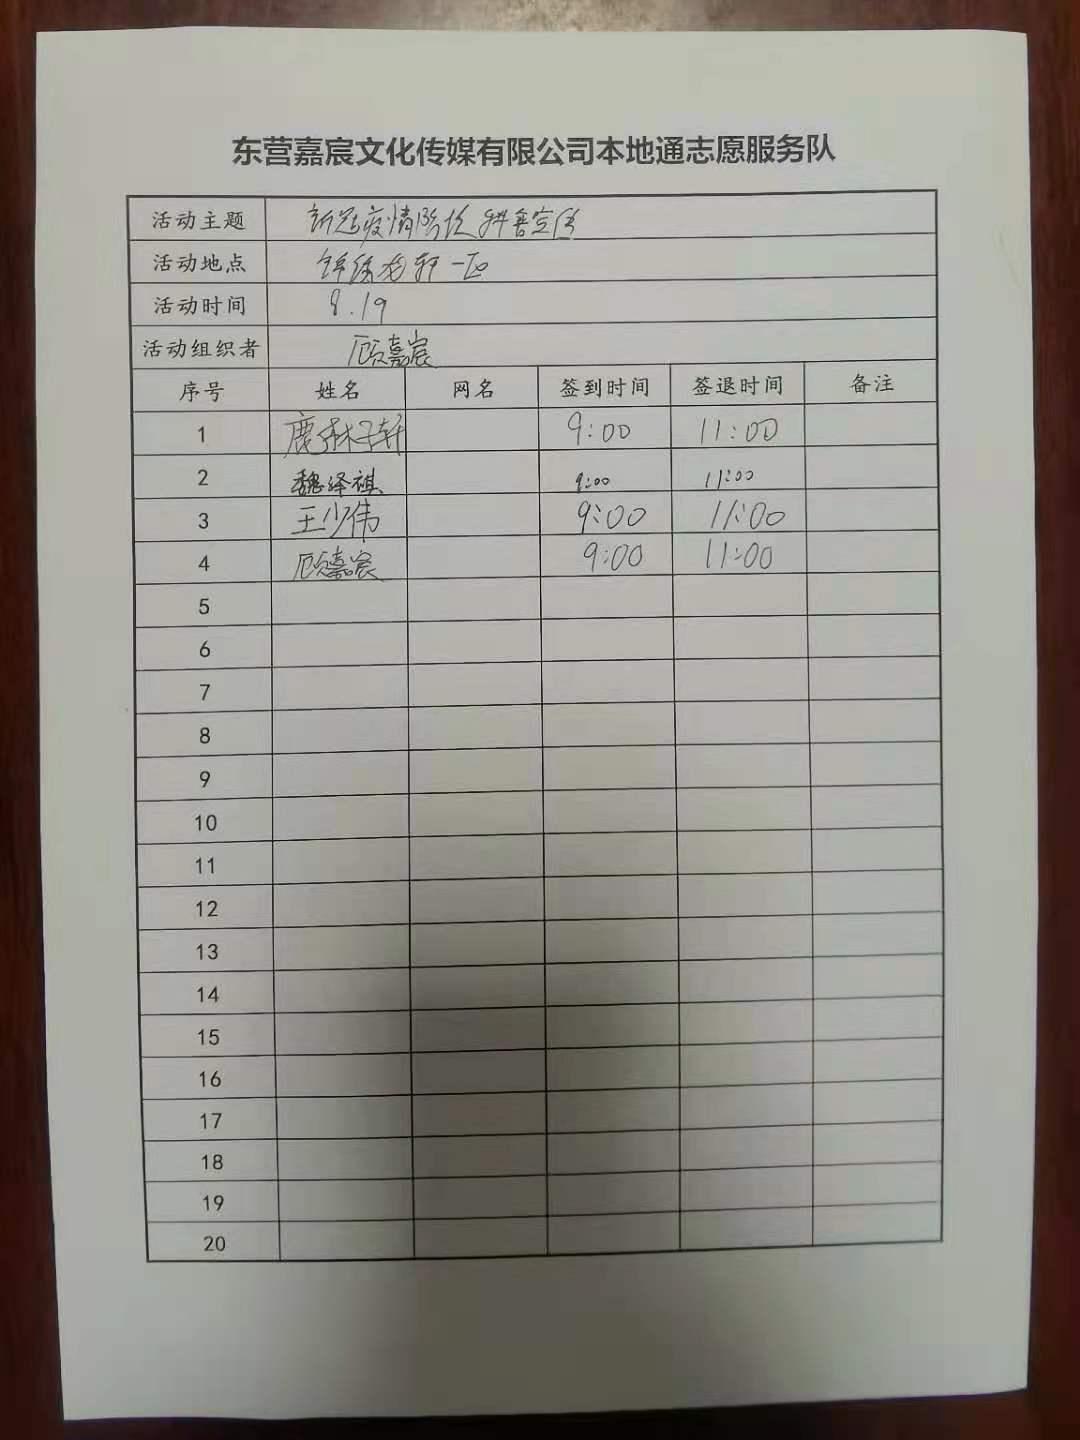 东营嘉宸文化传媒有限公司本地通志愿服务队
活动主题 新冠疫情阶段科普宣传
活动地点 锦绣龙轩一区
活动时间 8.19
活动组织者 顾嘉宸
序号 姓名 网名 签到时间 签退时间 备注
1 鹿林子轩 9:00 11:00
2 魏绎祺 9:00 11:00
3 王少伟 9:00 11:00
4 顾嘉宸 9:00 11:00
5
6
7
8
9
10
11
12
13
14
15
16
17
18
19
20